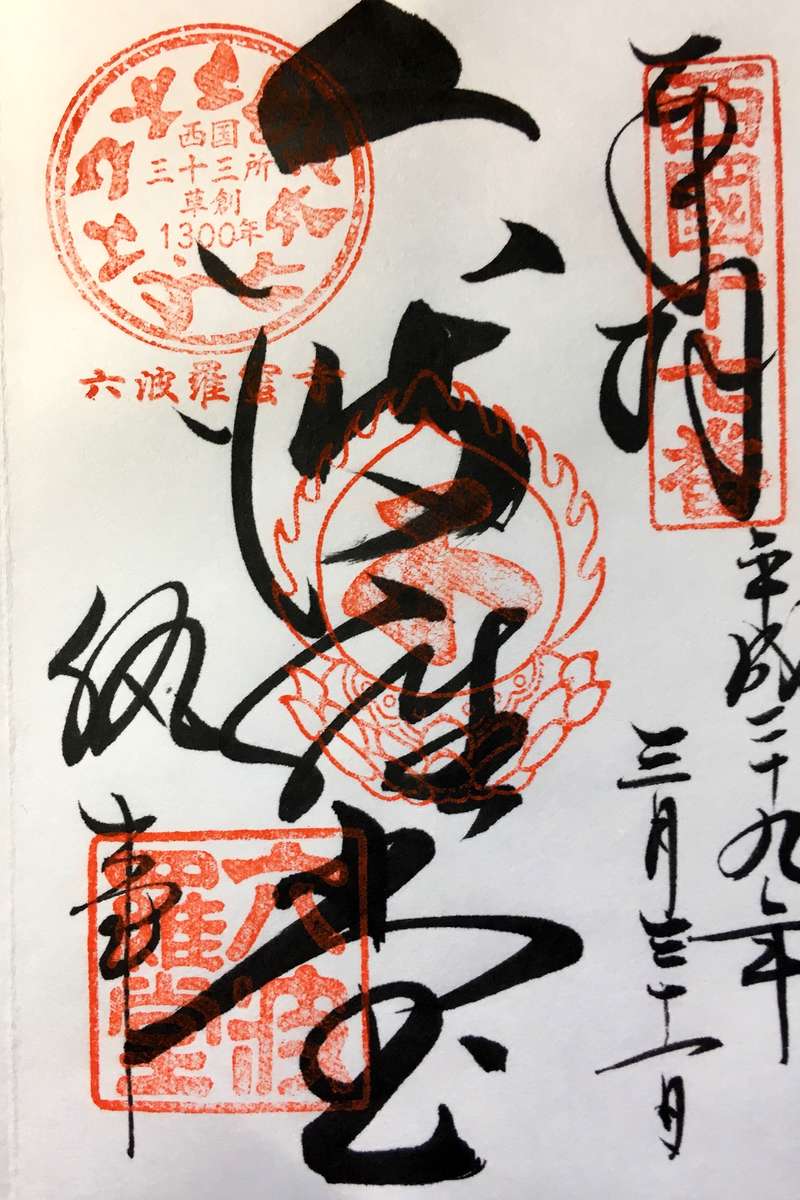 奉拝
西國十七番
平成二十九年
三月三十一日
六波羅堂
西国
三十三所
草創
1300年
六波羅蜜寺
執事
六波
羅堂